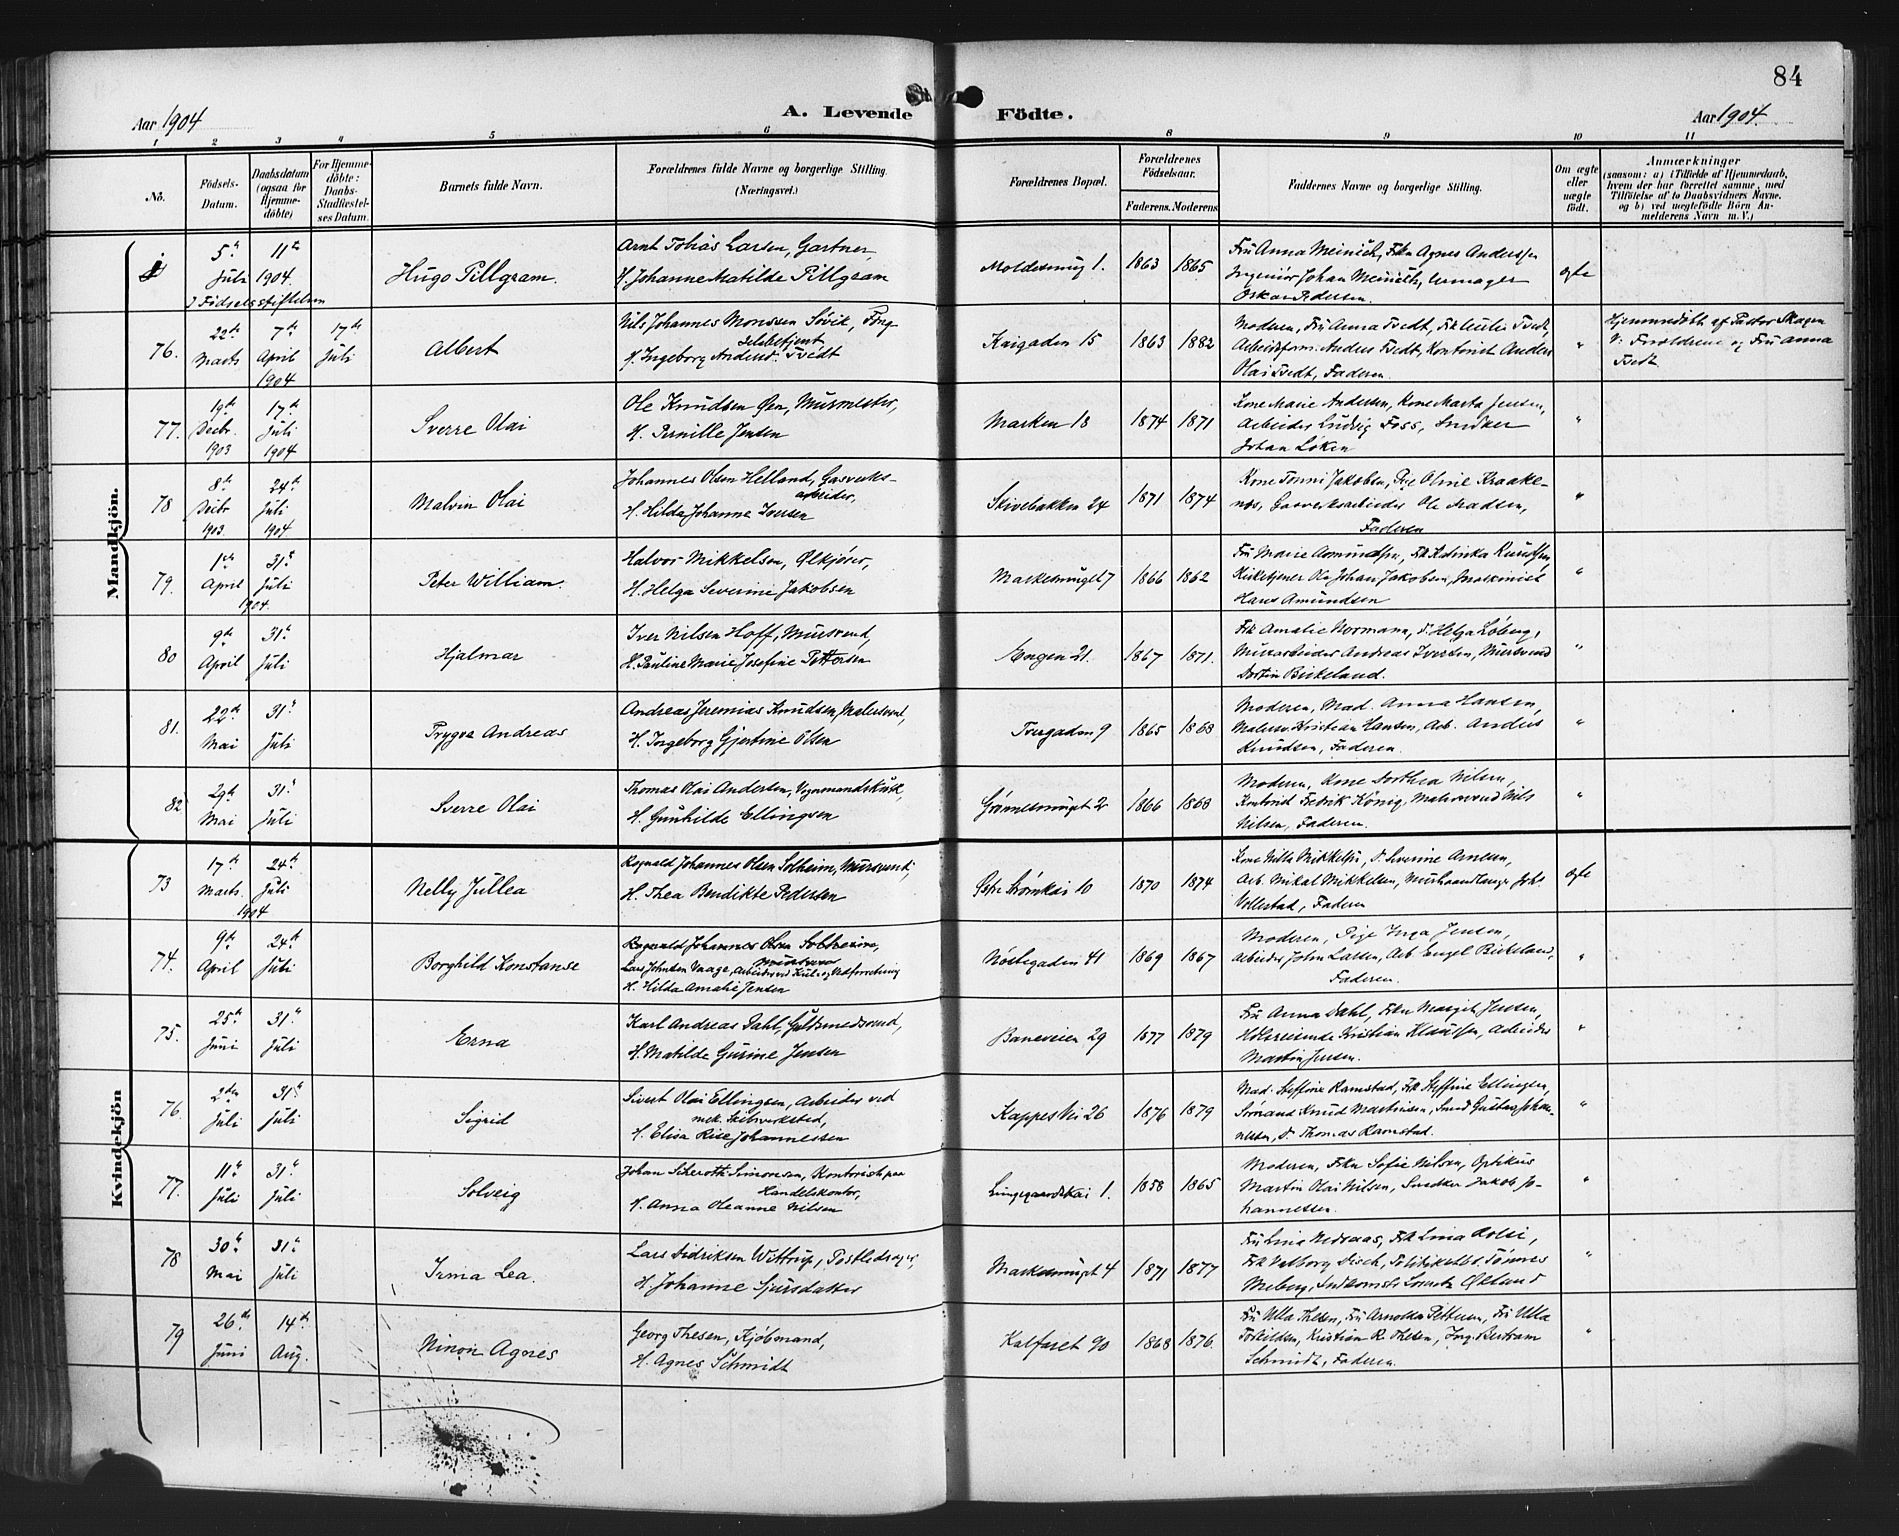 84
Aar 1904
A. Levende Födte.
Aar 1904.
1 2 3 4 5 6 8 9 10 11
No.
Födsels-Datum.
Daabsdatum (ogsaa for Hjemme-döbte)
For Hjemme-döbte: Daabs-Stadfæstel-ses Datum.
Barnets fulde Navn.
Forældrenes fulde Navne og borgerlige Stilling. (Næringsvei.)
Forældrenes Bopæl.
Forældrenes Födselsaar.
Faderens. Moderens
Faddernes Navne og borgerlige Stilling.
Om ægte eller uægte födt.
Anmærkninger
(saasom: a) i Tilfælde af Hjemmedaab, hvem der har forrettet samme, med Tilföielse af to Daabsvidners Navne. og b) ved uægtefödte Börn An-melderens Navn m. V.)
Mandkjön.
5te Juli
11te 1904.
I Fødselsstiftelsen
Hugo Pillgram.
Arnt Tobias Larsen, Gartner,
H. Johanne Matilde Pillgram
1. 1863 1865
Fru Anna Meinich, Frkn Agnes Anderssen
Ingeniør Johan Meinich,
Oskar Pedersen.
ægte
76. 22de Marts 7de April 1904 17de Juli
Albert
Nils Johannes Monssen Søvik, Fæng-
selsbetjent
H. Ingeborg Anders: Tvedt
Kaigaden 15 1863 1882
Moderen, Fru Anna Tvedt, Frk Tvedt,
Arbeidsform. Anders Tvedt, Kontorist Anders
Olai Tvedt, Faderen.
"
Hjemmedøbt af Pastor Skagen
V: Forældrene og Fru Anna
Tvedt.
77. 19de Decbr. 1903 17de Juli 1904
Sverre Olai
Ole Knudsen Øen, Murmester,
H. Pernille Jensen
Marken 18 1874 1871
Kone Marie Andersen, Kone Marta Jensen,
Arbeider Ludvig Foss, Snedker
Johan Løken
"
78 8de Decbr 1903. 24de Juli 1904
Malvin Olai
Johannes Olsen Helland, Gasverks-
arbeider,
H. Hilda Johanne Iversen
Skivebakken 24 1871 1874
Kone Tonni Jakobsen, Pige Oline Kraake-
nes, Gasverksarbeider Ole Madsen,
Faderen
"
79. 1ste April 31te Juli 1904.
Peter William.
Halvor Mikkelsen, Ølkjører,
H. Helga Severine Jakobsen
Markesmuget 7 1866 1862
Fru Marie Amundsen, Frk Katinka Knudsen,
Kirketjener Ole Johan Jakobsen, Maskinist
Hans Amundsen
"
80 9de April 31te Juli
Hjalmar
Iver Nilsen Hoff, Mursvend,
H. Pauline Marie Josefine Pettersen
Engen 21. 1867 1871.
Frk Amalie Normann, D. Helga Løberg,
Murarbeider Andreas Iversen, Mursvend
Dortin Birkeland.
"
81. 22de Mai 31te Juli
Trygve Andreas
Andreas Jeremias Knudsen, Malersvend,
H. Ingeborg Gjertine Olsen
Tvergaden 9 1865 1868
Moderen, Mad. Anna Hansen,
Malersv. Kristian Hansen, Arb. Anders
Knudsen, Faderen.
"
82 29de Mai 31te Juli
Sverre Olai
Thomas Olai Andersen, Vognmandskusk,
H. Gunhilde Ellingsen
Grønnesmuget 2 1866 1868
Moderen, Kone Dorthea Nilsen,
Kontorist Fredrik König, Malersvend Nils
Nilsen, Faderen.
"
Kvindekjön
73 17de Marts. 24de Juli 1904
Nelly Jullea
Ragnvald Johannes Olsen Solheim, Mursvend,
H. Thea Bendikte Pedersen
Strømkai 10 1870 1874
Kone Milla Mikkelsen, D. Severine Arnesen,
Arb. Mikal Mikkelsen, Joh.
Vollestad, Faderen
ægte
74. 9de April 24de Juli
Borghild Konstanse
Ragnvald Johannes Olsen Solheim,
Lars Johnsen Vaage, Arbeider ved Kul- og Vedforretning
H. Hilda Amalie Jensen
Nøstegaden 41 1869 1867
Moderen, Pige Inga Jensen,
Arbeider John Larsen, Arb. Engel Birkeland,
Faderen.
"
75. 25de Juni 31te Juli
Erna
Karl Andreas Dahl, Guldsmedsvend,
H. Matilde Gurine Jensen
Baneveien 29 1877 1879
Fru Anna Dahl, Frkn Margit Jensen,
Kristian Klaussen, Arbeider
Martin Jensen.
"
76 2den Juli 31te Juli
Sigrid
Sivert Olai Ellingsen, Arbeider ved
mek. Skibsverksted,
H. Elisa Rise Johannessen
Kappes Vei 26 1876 1879
Mad. Steffine Ramstad, Frk Steffine Ellingsen,
Knud Martinsen, Smed Gustav Johan-
nessen, D. Thomas Ramstad.
"
77. 11te Juli 31te Juli
Solveig
Johan Simonsen, Kontorist paa
Handelskontor,
H. Anna Oleanne Nilsen
Lungegaardskai 1. 1858 1865
Moderen, Frkn Sofie Nilsen, Optikus
Martin Olai Nilsen, Snedker Jakob Jo-
hannessen.
"
78 30te Mai 31te Juli
Irma Lea.
Lars Didriksen Wittrup, Postledsager,
H. Johanne Sjursdatter
Markesmuget 4 1871 1877
Fru Lina Nedraas, Frk Lina
Frk Valborg Disch, Tønnes
Meberg, Lorentz Økland
"
79 26de Juni 14de Aug.
Ninon Agnes
Georg Thesen, Kjøbmand,
H. Agnes Schmidt
Kalfaret 90 1868 1876.
Fru Ulla Thesen, Fru Arnolda Pettersen, Fru Ulla
Kristian R. Thesen, Ing. Bertram
Schmidt, Faderen.
"